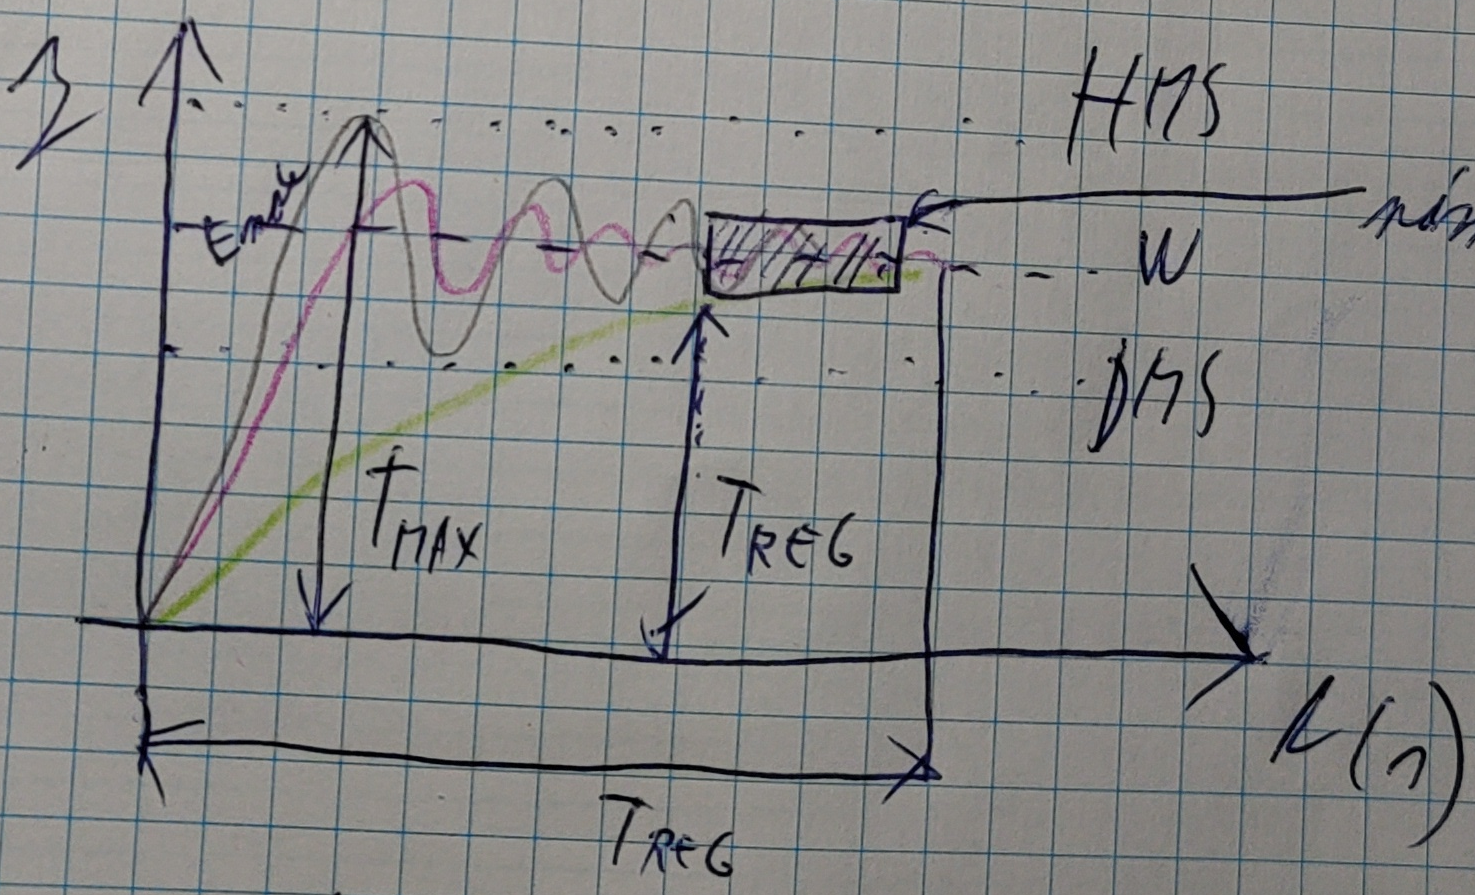 y
HMS
Emax
W
DMS
TMAX
TREG
t(s)
TREG